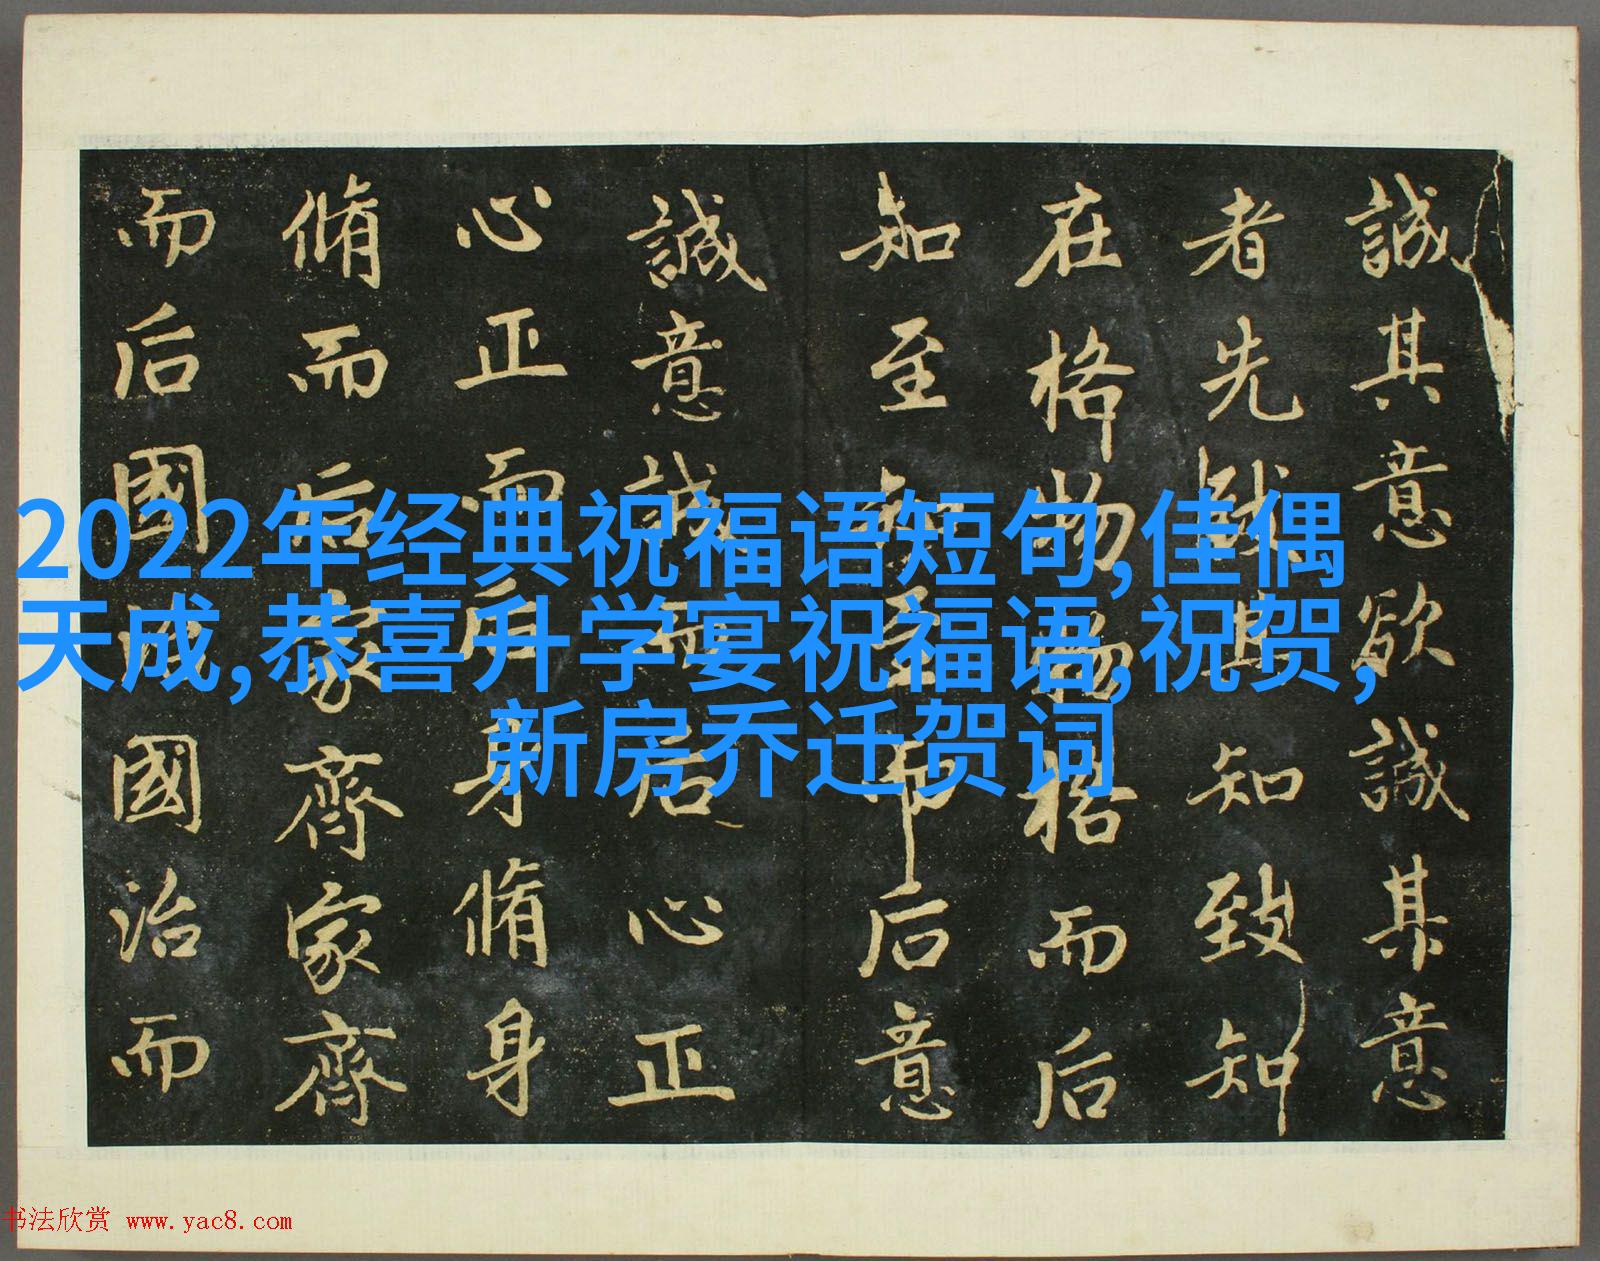 誠其意欲誠其意
者先致其知致知
在格物物格而后
知至知至而后意
誠意誠而后心正
心正而后身脩身
脩而后家齊家齊
而后國治國治而
2022年经典祝福语短句,佳偶
天成,恭喜升学宴祝福语,祝贺,
新房乔迁贺词
书法欣赏 www.yac8.com